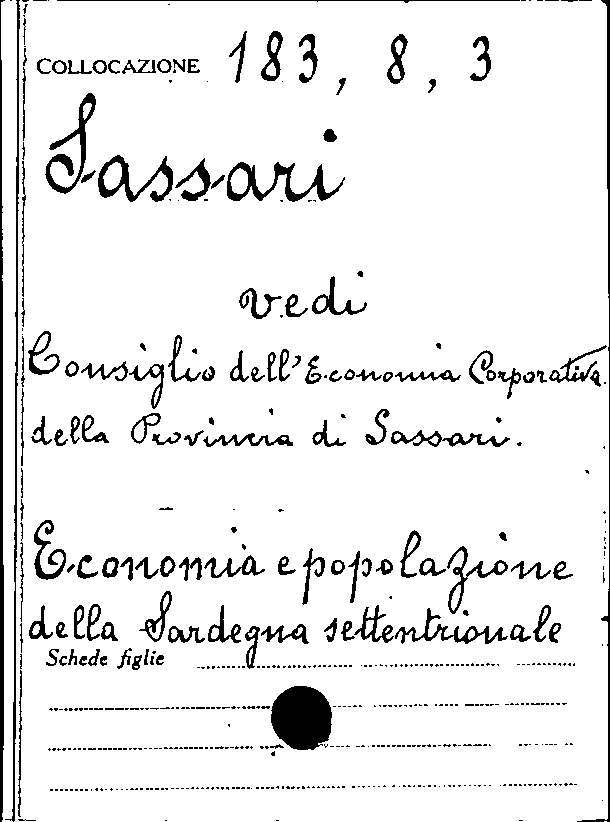 COLLOCAZIONE 183, 8, 3
Sassari
vedi
Consiglio dell'Economia Corporativa
della Provincia di Sassari.
Economia e popolazione
della Sardegna settentrionale
Schede figlie